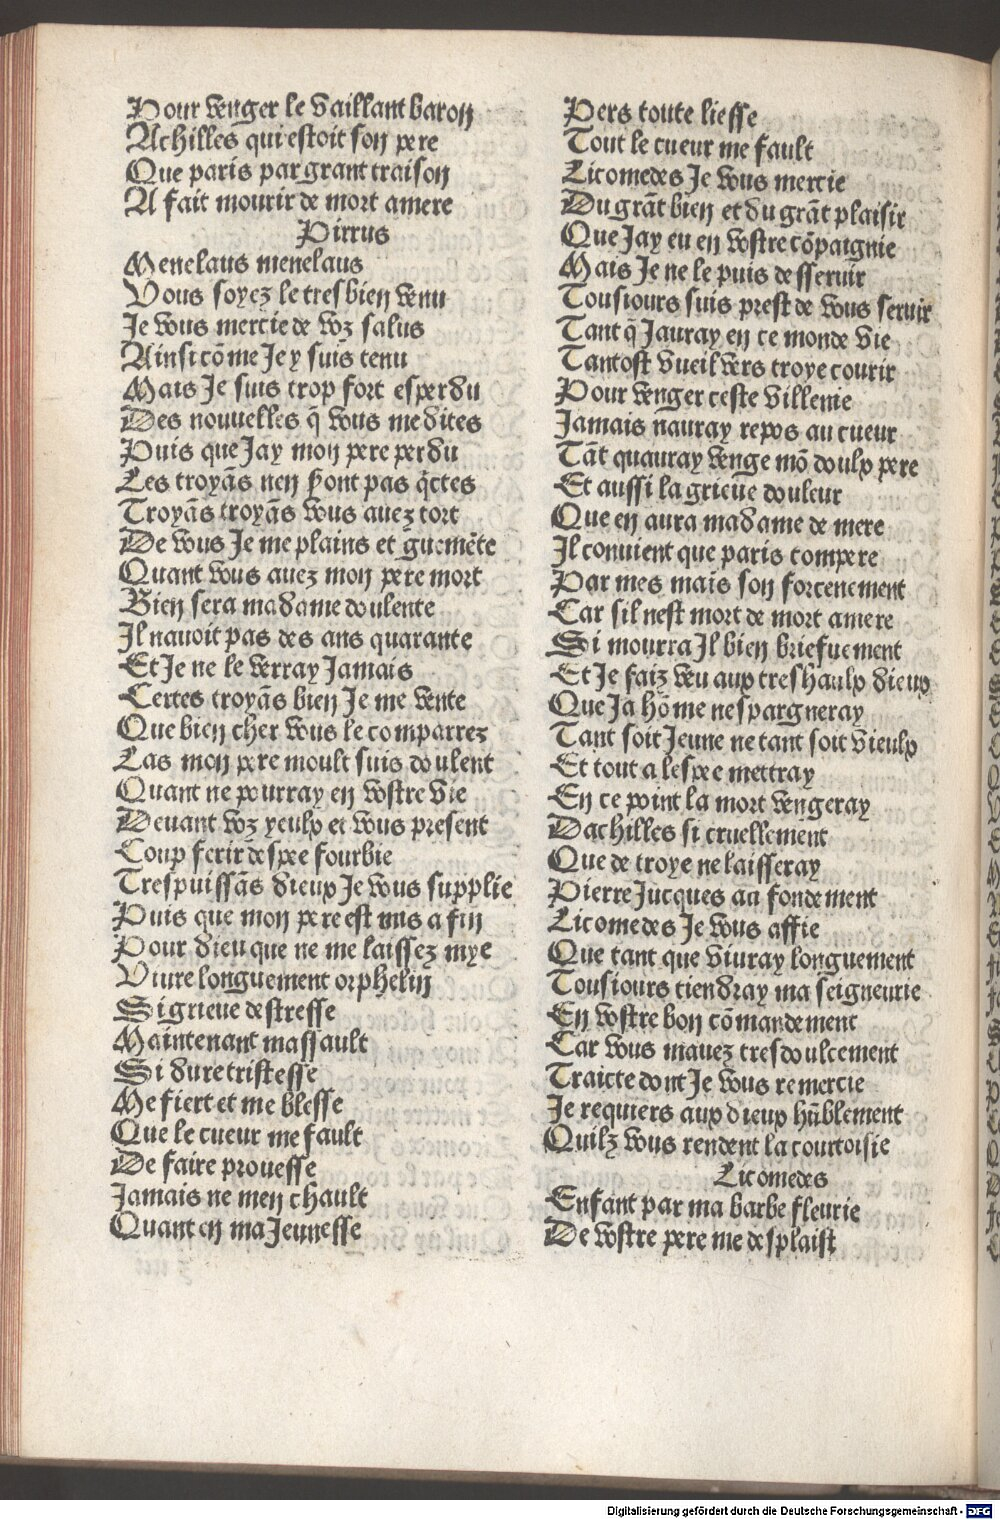 Pour venger le vaillant baron
Achilles qui estoit son pere
Que paris par grant traison
A fait mourir de mort amere
Pirrus
Menelaus menelaus
Vous soyez le tresbien venu
Je vous mercie de voz salus
Ainsi cōme Je y suis tenu
Mais Je suis trop fort esperdu
Des nouvelles q̄ vous me dites
Puis que Jay mon pere perdu
Les troyās nen sont pas q̄ctes
Troyās troyās vous auez tort
De vous Je me plains et gucmēte
Quant vous auez mon pere mort
Bien sera ma dame doulente
Il nauoit pas des ans quarante
Et Je ne le verray Jamais
Certes troyās bien Je me vente
Que bien cher vous le comparrez
Las mon pere moult suis doulent
Quant ne pourray en vostre vie
Deuant voz yeulx et vous present
Coup ferir despee fourbie
Trespuissās dieux Je vous supplie
Puis que mon pere est mis a fin
Pour dieu que ne me laissez mye
Viure longuement orphelin
Si grieue destresse
Maintenant massault
Si dure tristesse
Me fiert et me blesse
Que le cueur me fault
De faire prouesse
Jamais ne men chault
Quant en ma Jeunesse
Pers toute liesse
Tout le cueur me fault
Licomedes Je vous mercie
Du grāt bien et du grāt plaisir
Que Jay eu en vostre cōpaignie
Mais Je ne le puis desseruir
Tousiours suis prest de vous seruir
Tant q̄ Jauray en ce monde vie
Tantost vueil vers troye courir
Pour venger ceste villenie
Jamais nauray repos au cueur
Tāt quauray venge mō doulx pere
Et aussi la grieue douleur
Que en aura ma dame de mere
Il conuient que paris compere
Par mes mais son forcenement
Car sil nest mort de mort amere
Si mourra Jl bien briefuement
Et Je faiz veu aux treshaulx dieux
Que Ja hōme nespargneray
Tant soit Jeune ne tant soit vieulx
Et tout a lespee mettray
En ce point la mort vengeray
Dachilles si cruellement
Que de troye ne laisseray
Pierre Jucques au fondement
Licomedes Je vous affie
Que tant que viuray longuement
Tousiours tiendray ma seigneurie
En vostre bon cōmandement
Car vous mauez tresdoulcement
Traicte dont Je vous remercie
Je requiers aux dieux hūblement
Quilz vous rendent la courtoisie
Licomedes
Enfant par ma barbe fleurie
De vostre pere me desplaist
Digitalisierung gefördert durch die Deutsche Forschungsgemeinschaft - DFG